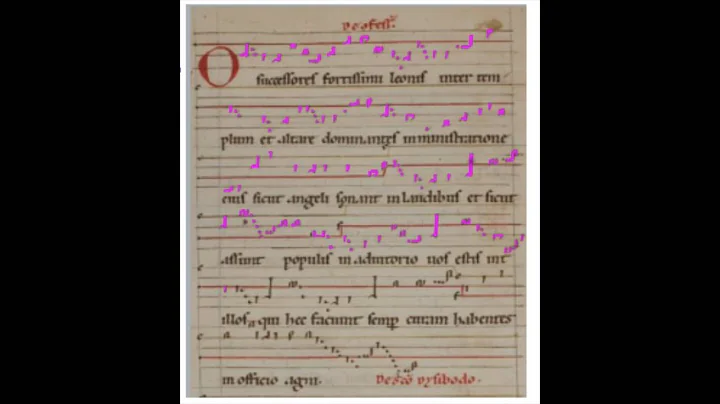 De ofess.
O successores fortissimi leonis inter tem
plum et altare dominantes in ministratione
eius sicut angeli sonant in laudibus et sicut
assunt populis in adiutorio uos estis int
illos qui hec faciunt semp curam habentes
in officio agni.
De sco dysibodo.